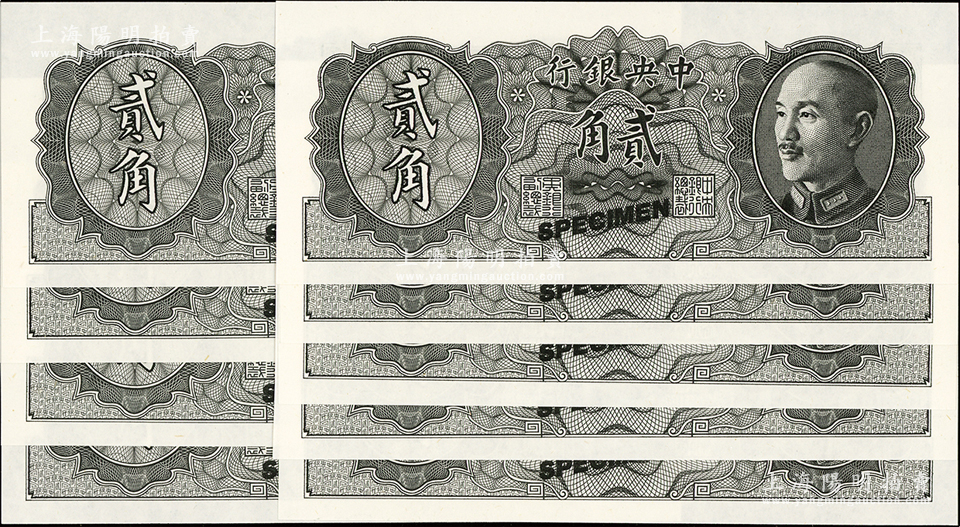 上海陽明拍賣
www.yangmingauction.com
貳角
中央銀行
貳角
貳角
SPECIMEN
上海陽明拍賣
www.yangmingauction.com
SPECIMEN
SPECIMEN
SPECIMEN
上海陽明拍賣
www.yangmingauction.com